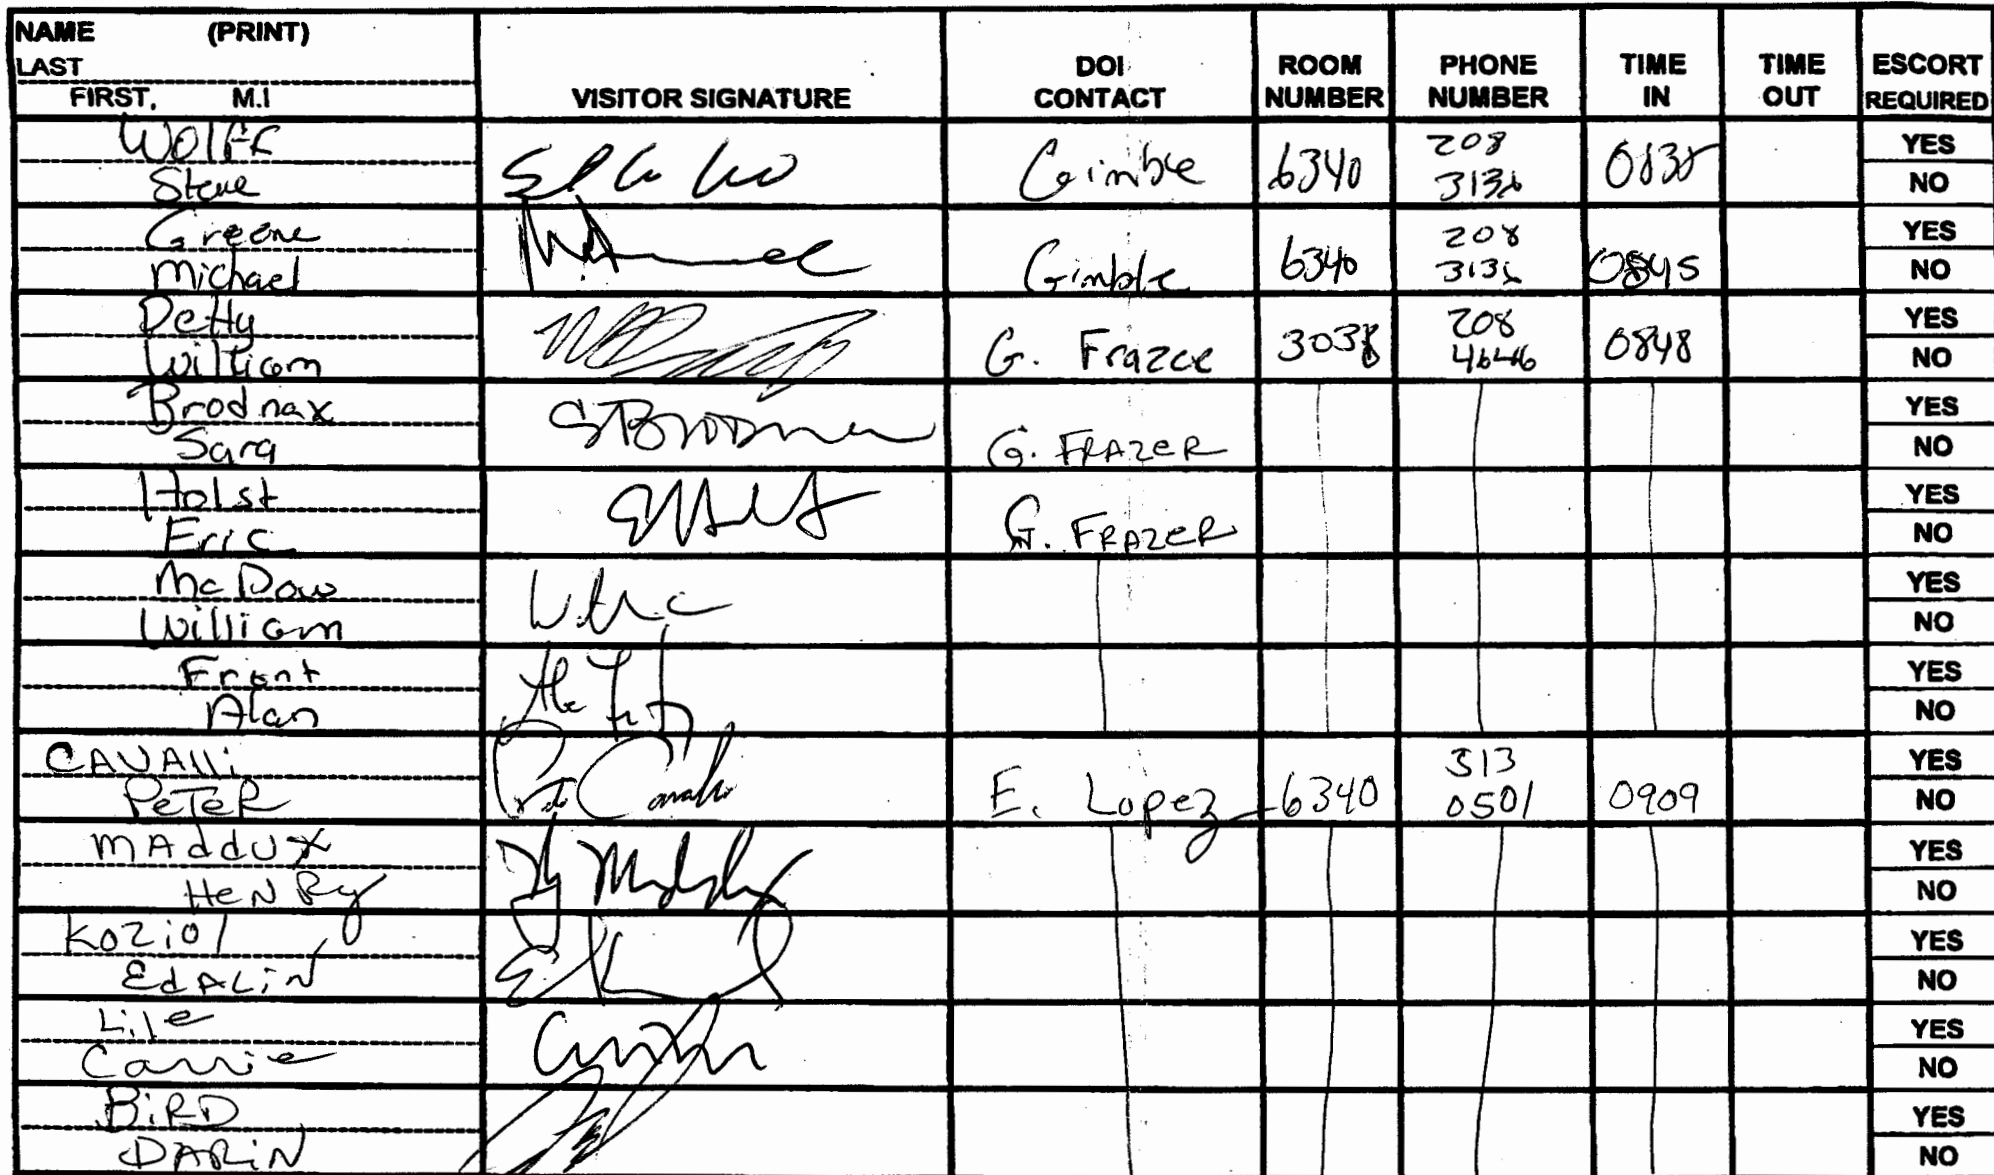 NAME (PRINT)
LAST
FIRST, M.I
VISITOR SIGNATURE
DOI CONTACT
ROOM NUMBER
PHONE NUMBER
TIME IN
TIME OUT
ESCORT REQUIRED
Wolff
Steve
Gimble 6340 208 313 YES NO
Greene
Michael
Gimble 6340 208 313 0845 YES NO
Detty
William
G. Frazer 3038 208 4646 0848 YES NO
Brodnax
Sara
SBrodnax G. FRAZER YES NO
Holst
Eric
G. FRAZER YES NO
McDow
William
YES NO
Front
Alan
YES NO
CAVAlli
PeTeR
E. Lopez 6340 513 0501 0909 YES NO
MAddUX
HeNRy
YES NO
Koziol
EdALiN
YES NO
Lile
Carrie
YES NO
BiRD
DARiN
YES NO